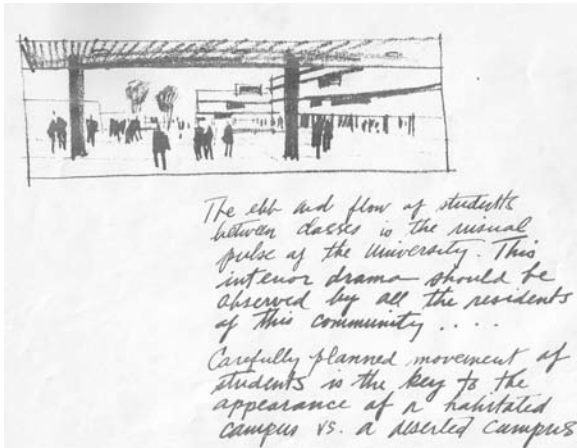 The ebb and flow of students
between classes is the visual
pulse of the University. This
interior drama should be
observed by all the residents
of this community . . . .
Carefully planned movement of
students is the key to the
appearance of a habitated
campus vs. a deserted campus